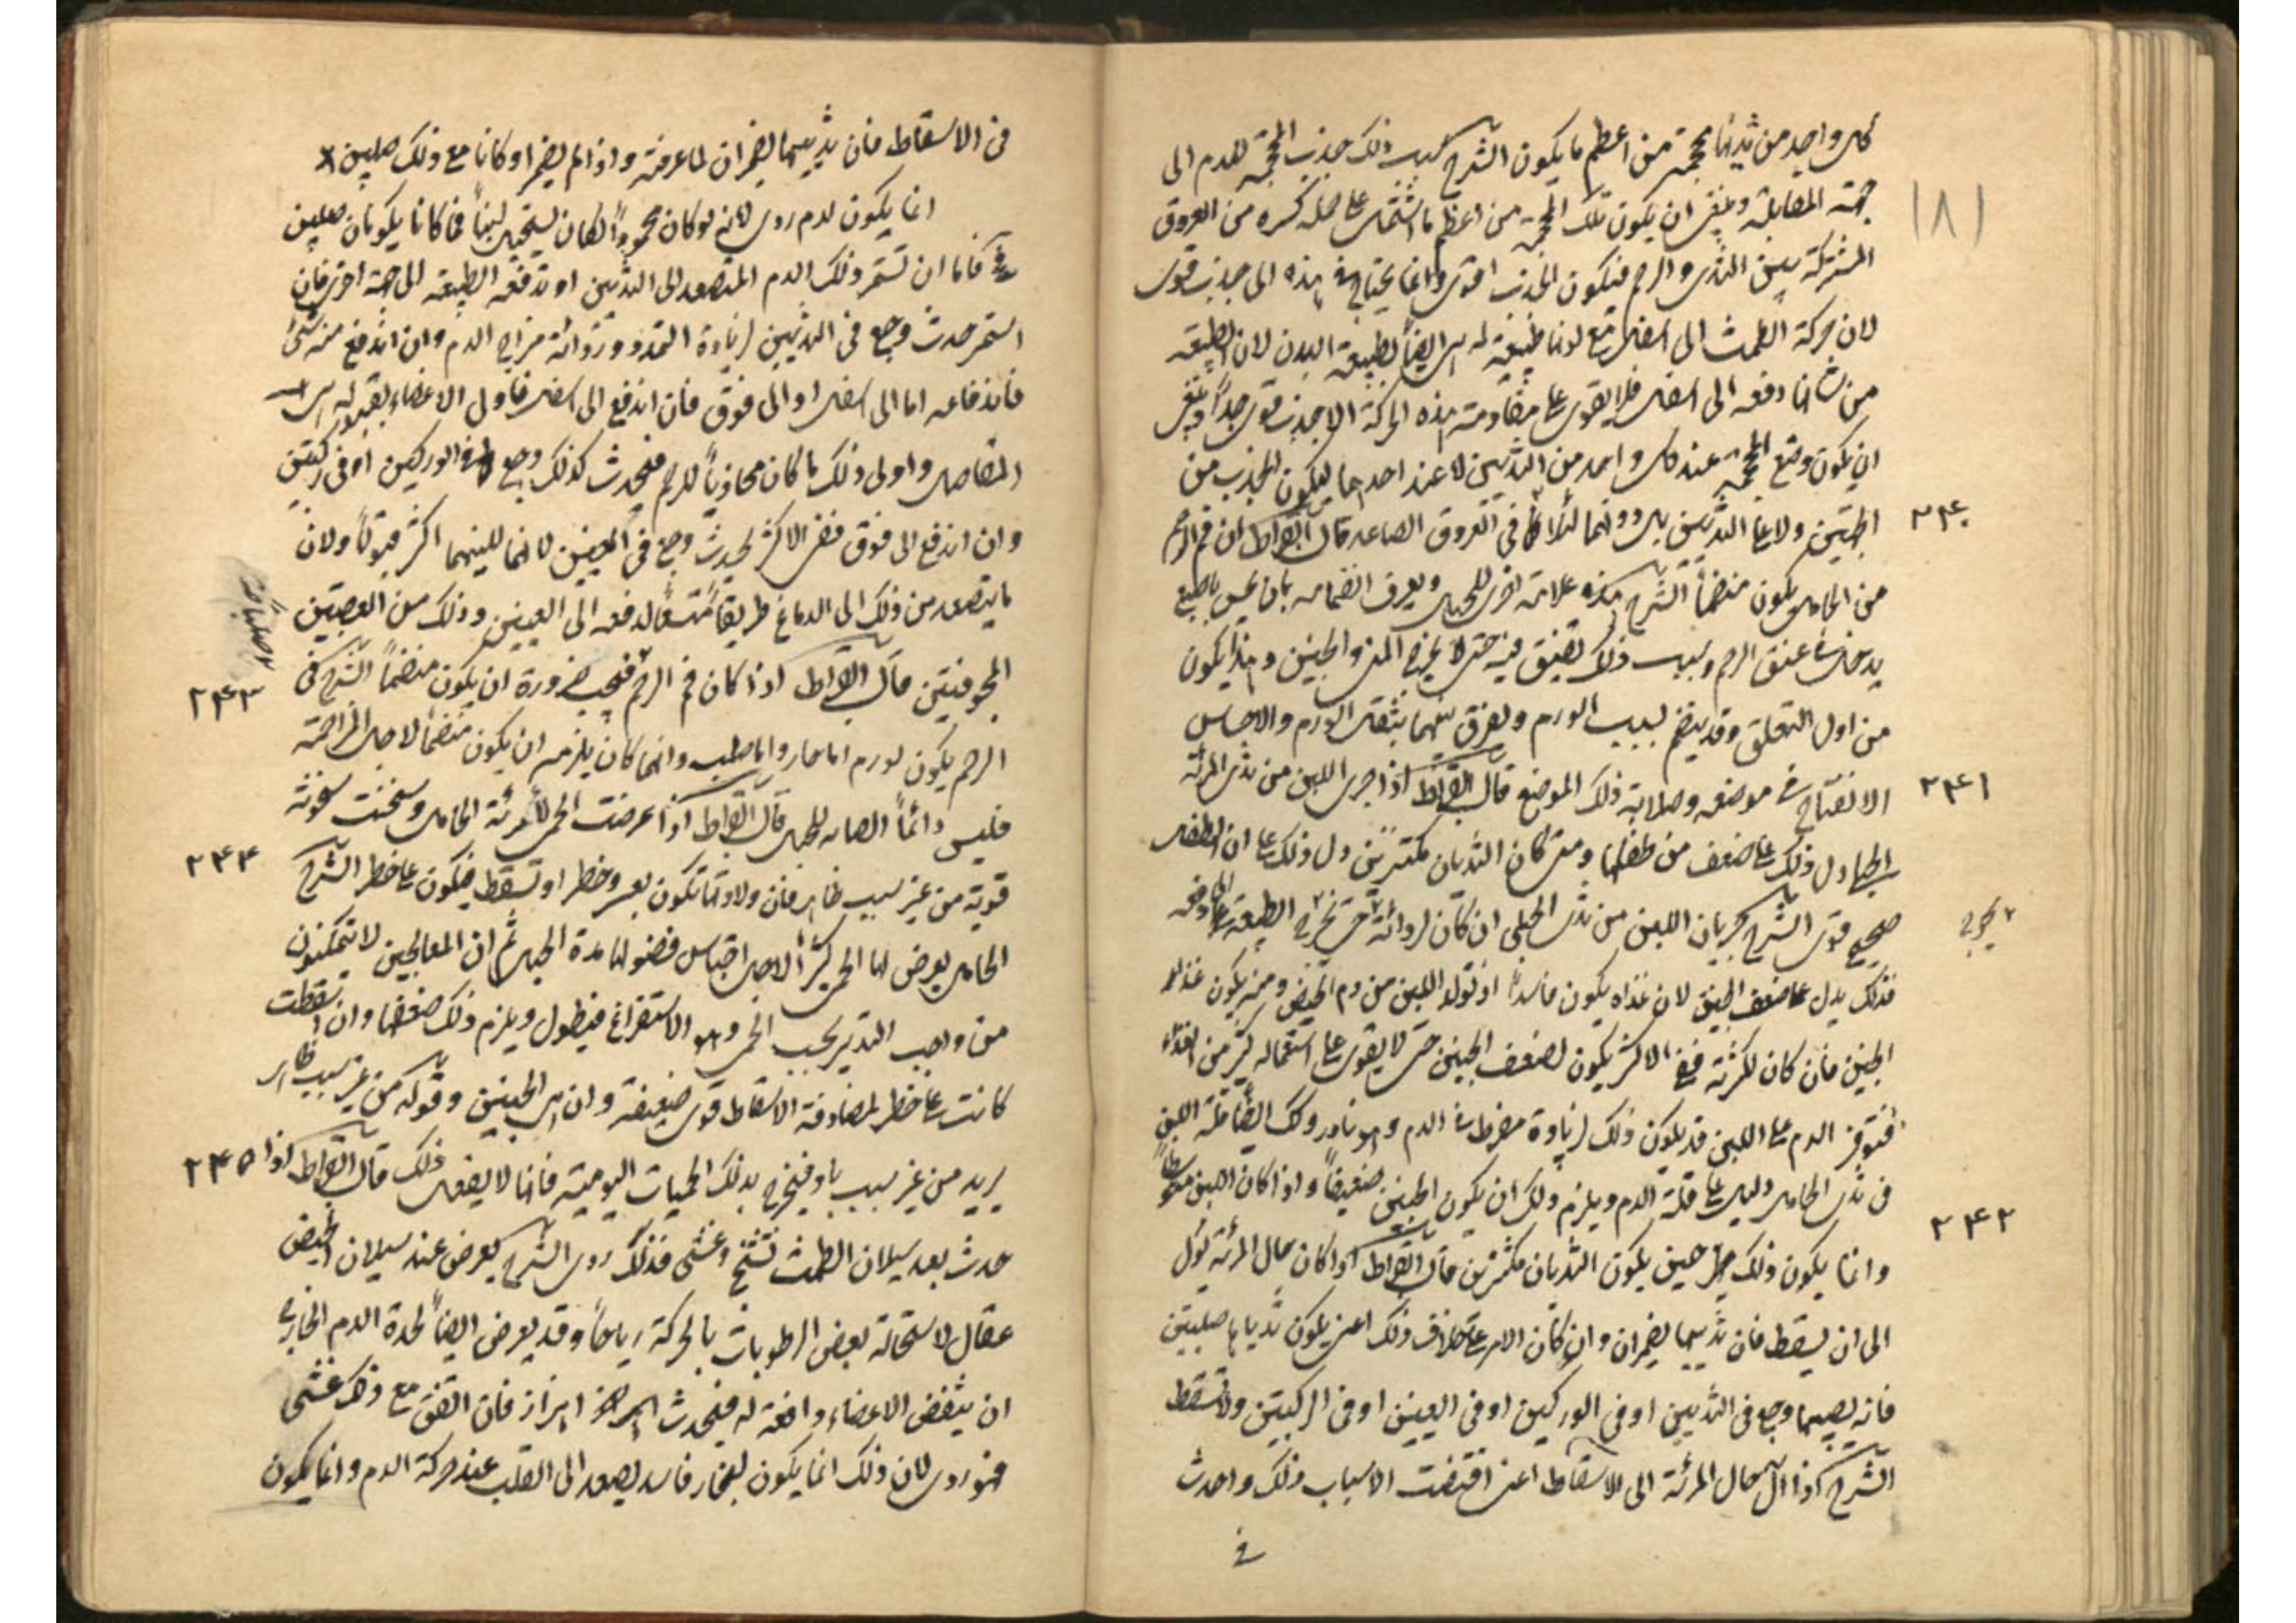 كل واحد من ثدييها محجمة من اعظم ما يكون الشرح سبب ذلك جذب المحجمة للدم الى
جهة المقابلة وينبغى ان يكون تلك المحجمة من اعظم ما اشتمال على جملة كثيره من العروق
المشتركة بين الثدى والرحم فيكون الجذب اقوى وانما يحتاج فى هذه الى جذب قوى
لان حركة الطمث الى اسفل مع لونها طبيعية له هى ايضاً لطبيعة البدن لان الطبيعة
من شانها دفعه الى اسفل فلا يقوى على مقاومة هذه الحركة الا جذب قوى جداً وينبغى
ان يكون وضع المحجمة عند كل واحد من الثديين لا عند احدهما ليكون الجذب من
الجهتين ولا على الثديين بل دونهما فى العروق الصاعده قال ابقراط ان فم الرحم
من الحامل يكون منضماً الشرح هذه علامة اخرى للحبل ويعرف انضمامه بان تمس باصبع
يدخل فى عنق الرحم وسبب ذلك تضيق فيه حتى لا يخرج المنى والجنين وهذا يكون
من اول التعلق وقد ينضم لسبب الورم ويفرق بينهما بثقل الورم والاحساس
الانفتاح فى موضعه وصلابة ذلك الموضع قال ابقراط اذا جرى اللبن من ثدى المرئة
الحبلى دل ذلك على ضعف من طفلها ومتى كان الثديان مكتنزين دل ذلك على ان الطفل
صحيح قوى الشرح جريان اللبن من ثدى الحبلى ان كان لردائة حتى تخرج الطبيعة
فذلك يدل على ضعف الجنين لان غذاه يكون فاسداً اذ تولد اللبن من دم الحيض ومنه يكون غذاء
الجنين فان كان لكثرته ففى الاكثر يكون لضعف الجنين حتى لا يقوى على استعماله كثير من الغذاء
فتوفر الدم على اللبن قد يكون ذلك لزيادة مفرط فى الدم وهو نادر وكك ايضاً قلة اللبن
فى ثدى الحامل دليل على قلة الدم ويلزم ذلك ان يكون الجنين ضعيفاً واذا كان اللبن
وانما يكون ذلك حين يكون الثديان مكتنزين قال ابقراط اذا كان حال المرئة يؤل
الى ان يسقط فان ثدييها يضمران وان كان الامر على خلاف ذلك اعنى يكون ثدياها صلبين
فانه يصيبها وجع فى الثديين او فى الوركين او فى العينين او فى الركبتين ولا تسقط
الشرح اذا آل حال المرئة الى الاسقاط اعنى اقتضت الاسباب ذلك واحدث
فى
١٨١
٢٤٠
٢٤١
٢٤٢
فى الاسقاط فان ثدييها يضمران لما عرفته واذا لم يضمرا وكانا مع ذلك صلبين
انما يكون لدم ردى لانه لو كان محموداً لكان يستحيل لبناً فما كانا يكونان صلبين
فاما ان تستمر ذلك الدم المتصعد الى الثديين او تدفعه الطبيعة الى جهة اخرى فان
استمر حدث وجع فى الثديين لزيادة التمدد وردائة مزاج الدم وان اندفع منه شئ
فاندفاعه اما الى اسفل او الى فوق فان اندفع الى اسفل فاول الاعضاء بقبوله هى
المفاصل واولى ذلك ما كان محاذياً للرحم فيحدث كذلك وجع فى الوركين او فى ركبتين
وان اندفع الى فوق ففى الاكثر يحدث وجع فى العينين لانهما للينهما اكثر قبولاً ولان
ما يتصعد من ذلك الى الدماغ طريقاً متسعاً لدفعه الى العينين وذلك من العصبتين
المجوفتين قال ابقراط اذا كان فم الرحم فيجب ضرورة ان يكون منضماً الشرح فى
الرحم يكون لورم اما حار واما صلب وانما كان يلزم ان يكون منضماً لاجل المزاحمة
فليس دائماً انضمامه للحبل قال ابقراط اذا عرضت الحمى لامرئة الحامل وسخنت سخونة
قوية من غير سبب ظاهر فان ولادتها تكون بعسر وخطر او تسقط فيكون على خطر الشرح
الحامل يعرض لها الحمى كثيراً لاجل احتباس فضولها مدة الحبل ثم ان المعالجين لا يتمكنون
من واجب التدبير بحسب الحمى وهو الاستفراغ فيطول ويلزم ذلك ضعفها وان اسقطت
كانت على خطر لمصادفة الاسقاط قوى ضعيفة وان هى الجنين وقوله من غير سبب ظاهر
يريد من غير سبب باد فيخرج بذلك الحميات اليومية فانها لا يفعل ذلك قال ابقراط اذا
حدث بعد سيلان الطمث تشنج وغشى فذلك ردى الشرح يعرض عند سيلان الحيض
عقال لاستحالة بعض الرطوبات بالحركة رياحاً وقد يعرض ايضاً لحدة الدم الخارج
ان ينتفض الاعضاء دافعة له فيحدث اهتزاز فان اتفق مع ذلك غشى
فهو ردى لان ذلك انما يكون لبخار فاسد يصعد الى القلب عند حركة الدم وانما يكون
٢٤٣
٢٤٤
٢٤٥